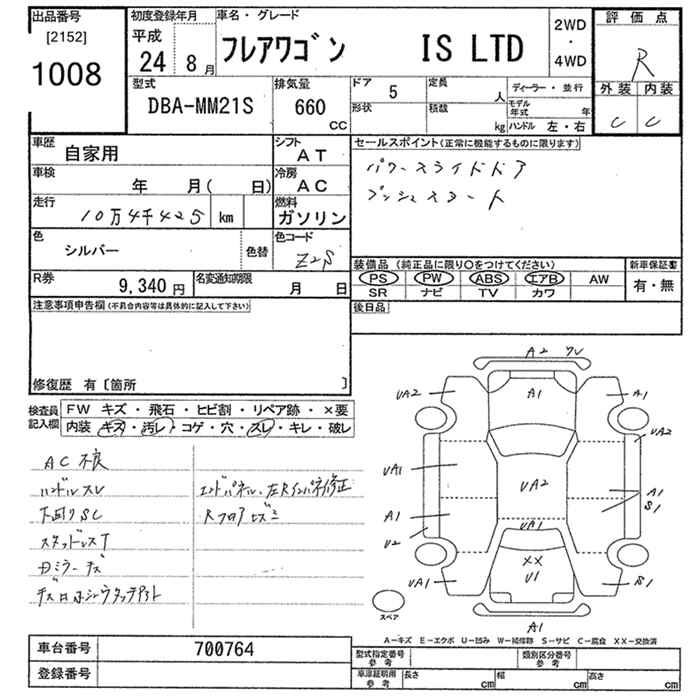 出品番号 初度登録年月 車名・グレード 評価点
[2152] 平成 2WD
1008 24 8月 フレアワゴン IS LTD ・ R
4WD
型式 排気量 ドア 5 定員 人 ディーラー・並行 外装 内装
DBA-MM21S 660 cc 形状 積載 kg モデル年式 年 C C
ハンドル 左・右
車歴 自家用 シフト AT セールスポイント(正常に機能するものに限ります)
車検 年 月( 日) 冷房 AC パワースライドドア
走行 10万4千425 km 燃料 ガソリン プッシュスタート
色 シルバー 色替 色コード Z2S
装備品(純正品に限り○をつけてください) 新車保証書
R券 9,340円 名変通知期限 月 日 PS PW ABS エアB AW 有・無
SR ナビ TV カワ
注意事項申告欄(不具合内容等は具体的に記入して下さい) 後日品
修復歴 有〔箇所 〕
検査員記入欄 FW キズ・飛石・ヒビ割・リペア跡・×要
内装 キズ・汚レ・コゲ・穴・スレ・キレ・破レ
AC不良
ハンドルスレ エンドパネル、左Rインパネ修正
下廻りSC Rフロアヒズミ
スタッドレスT
日ミラーキズ
A2 ワレ
UA2 A1 A1
UA2
UA1 UA2 A1
A1 S1
U2 UA1
XX
UA1 U1 S1
スペア A1
A-キズ E-エクボ U-凹み W-補修跡 S-サビ C-腐食 XX-交換済
車台番号 700764 型式指定番号 参考 類別区分番号 参考
登録番号 車庫証明用 参考 長さ cm 幅 cm 高さ cm